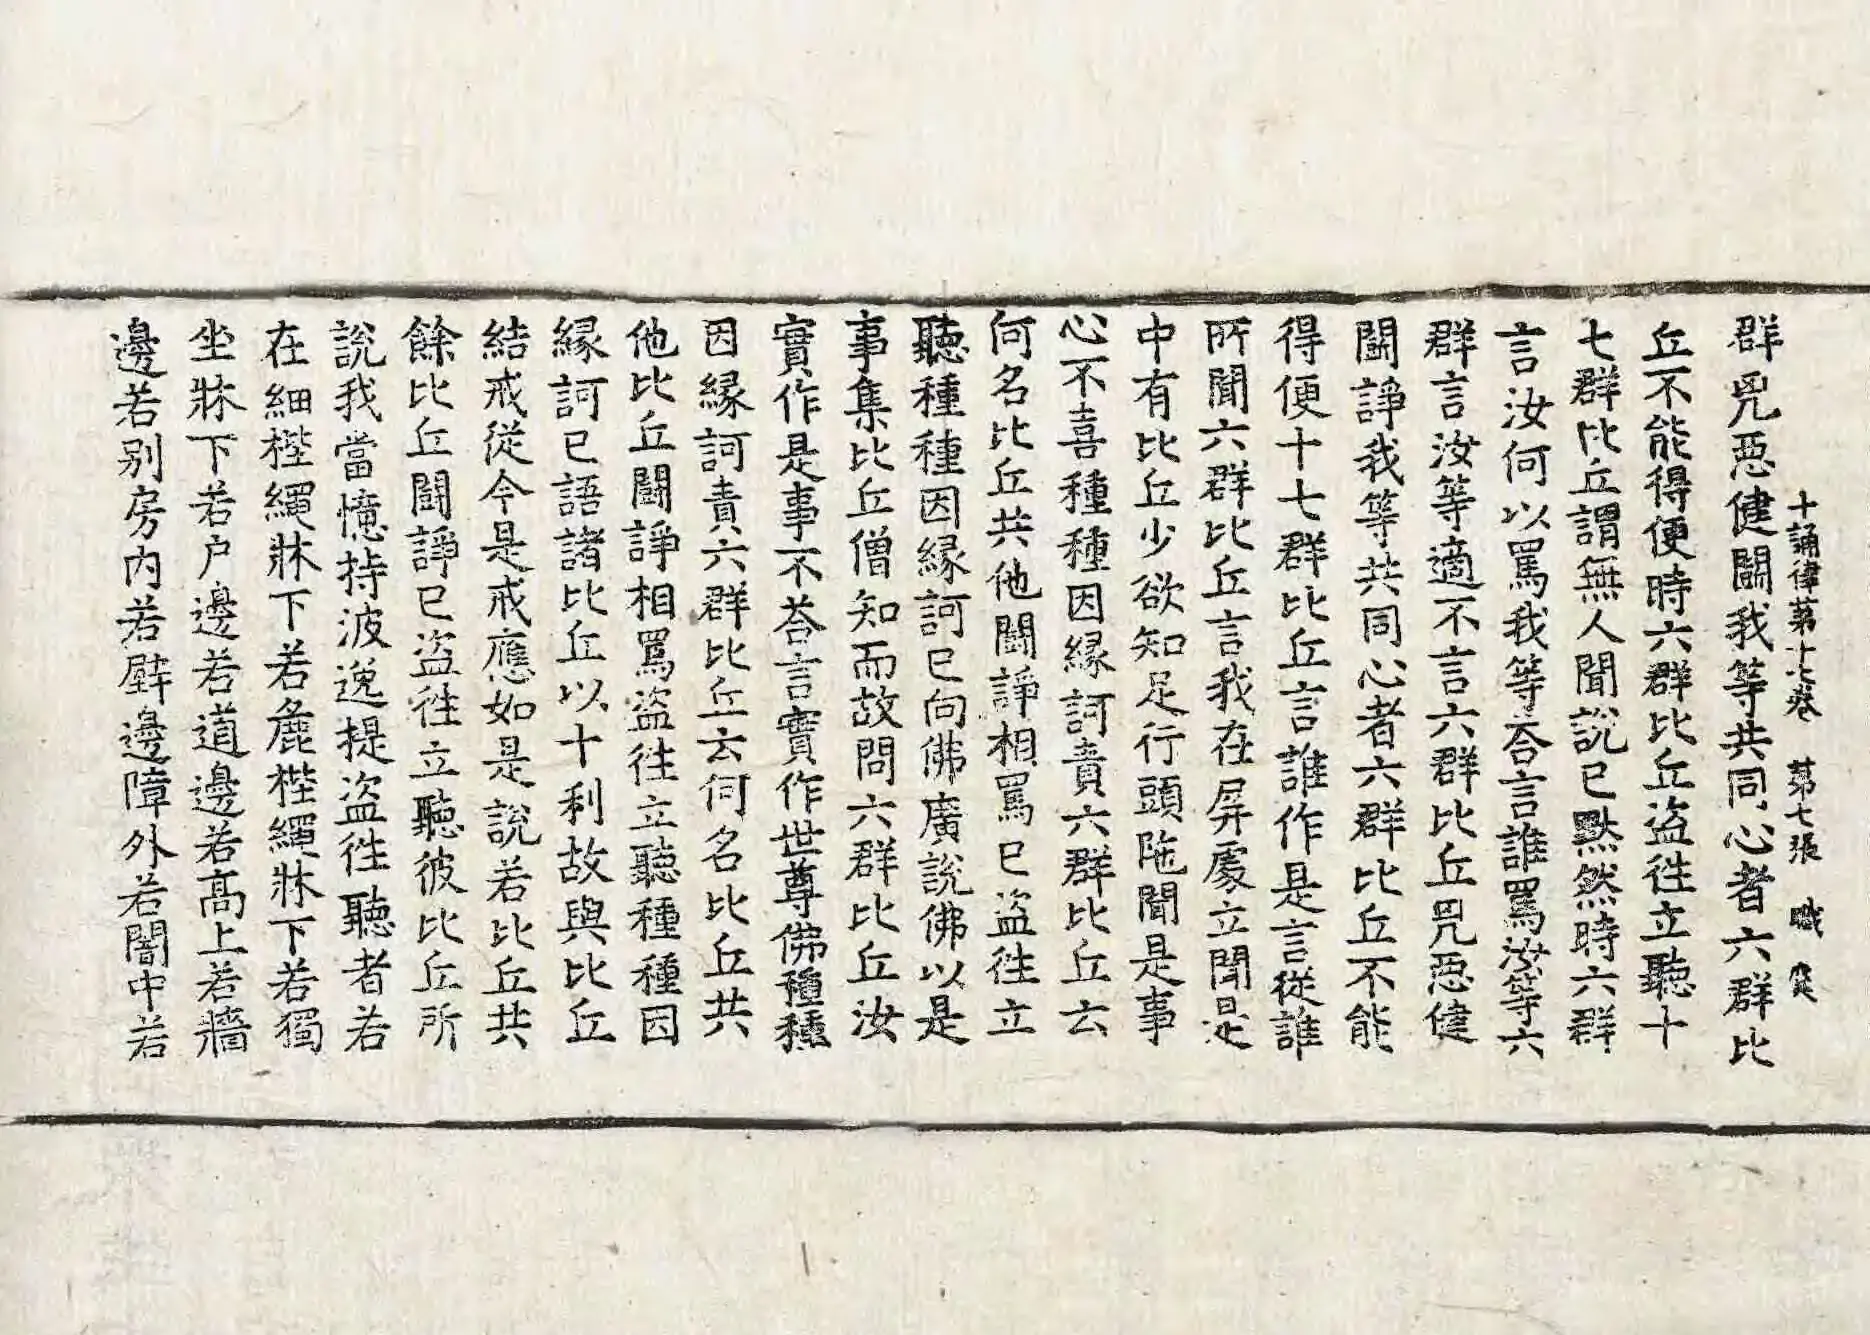 十誦律苐十七卷　苐七張　職
群兇惡健鬪我等共同心者六群比
丘不能得便時六群比丘盜徃立聽十
七群比丘謂無人聞說已默然時六群
言汝何以罵我等荅言誰罵汝等六
群言汝等適不言六群比丘咒惡健
鬪諍我等共同心者六群比丘不能
得便十七群比丘言誰作是言從誰
所聞六群比丘言我在屏處立聞是
中有比丘少欲知足行頭陁聞是事
心不喜種種因緣訶責六群比丘云
何名比丘共他鬪諍相罵已盜徃立
聽種種因緣訶已向佛廣說佛以是
事集比丘僧知而故問六群比丘汝
實作是事不荅言實作世尊佛種種
因緣訶責六群比丘云何名比丘共
他比丘鬪諍相罵盜徃立聽種種因
緣訶已語諸比丘以十利故與比丘
結戒從今是戒應如是說若比丘共
餘比丘鬪諍已盜徃立聽彼比丘所
說我當憶持波逸提盜徃聽者若
在細桱繩牀下若麁桱繩牀下若獨
坐牀下若户邊若道邊若髙上若牆
邊若別房內若壁邊障外若闇中若